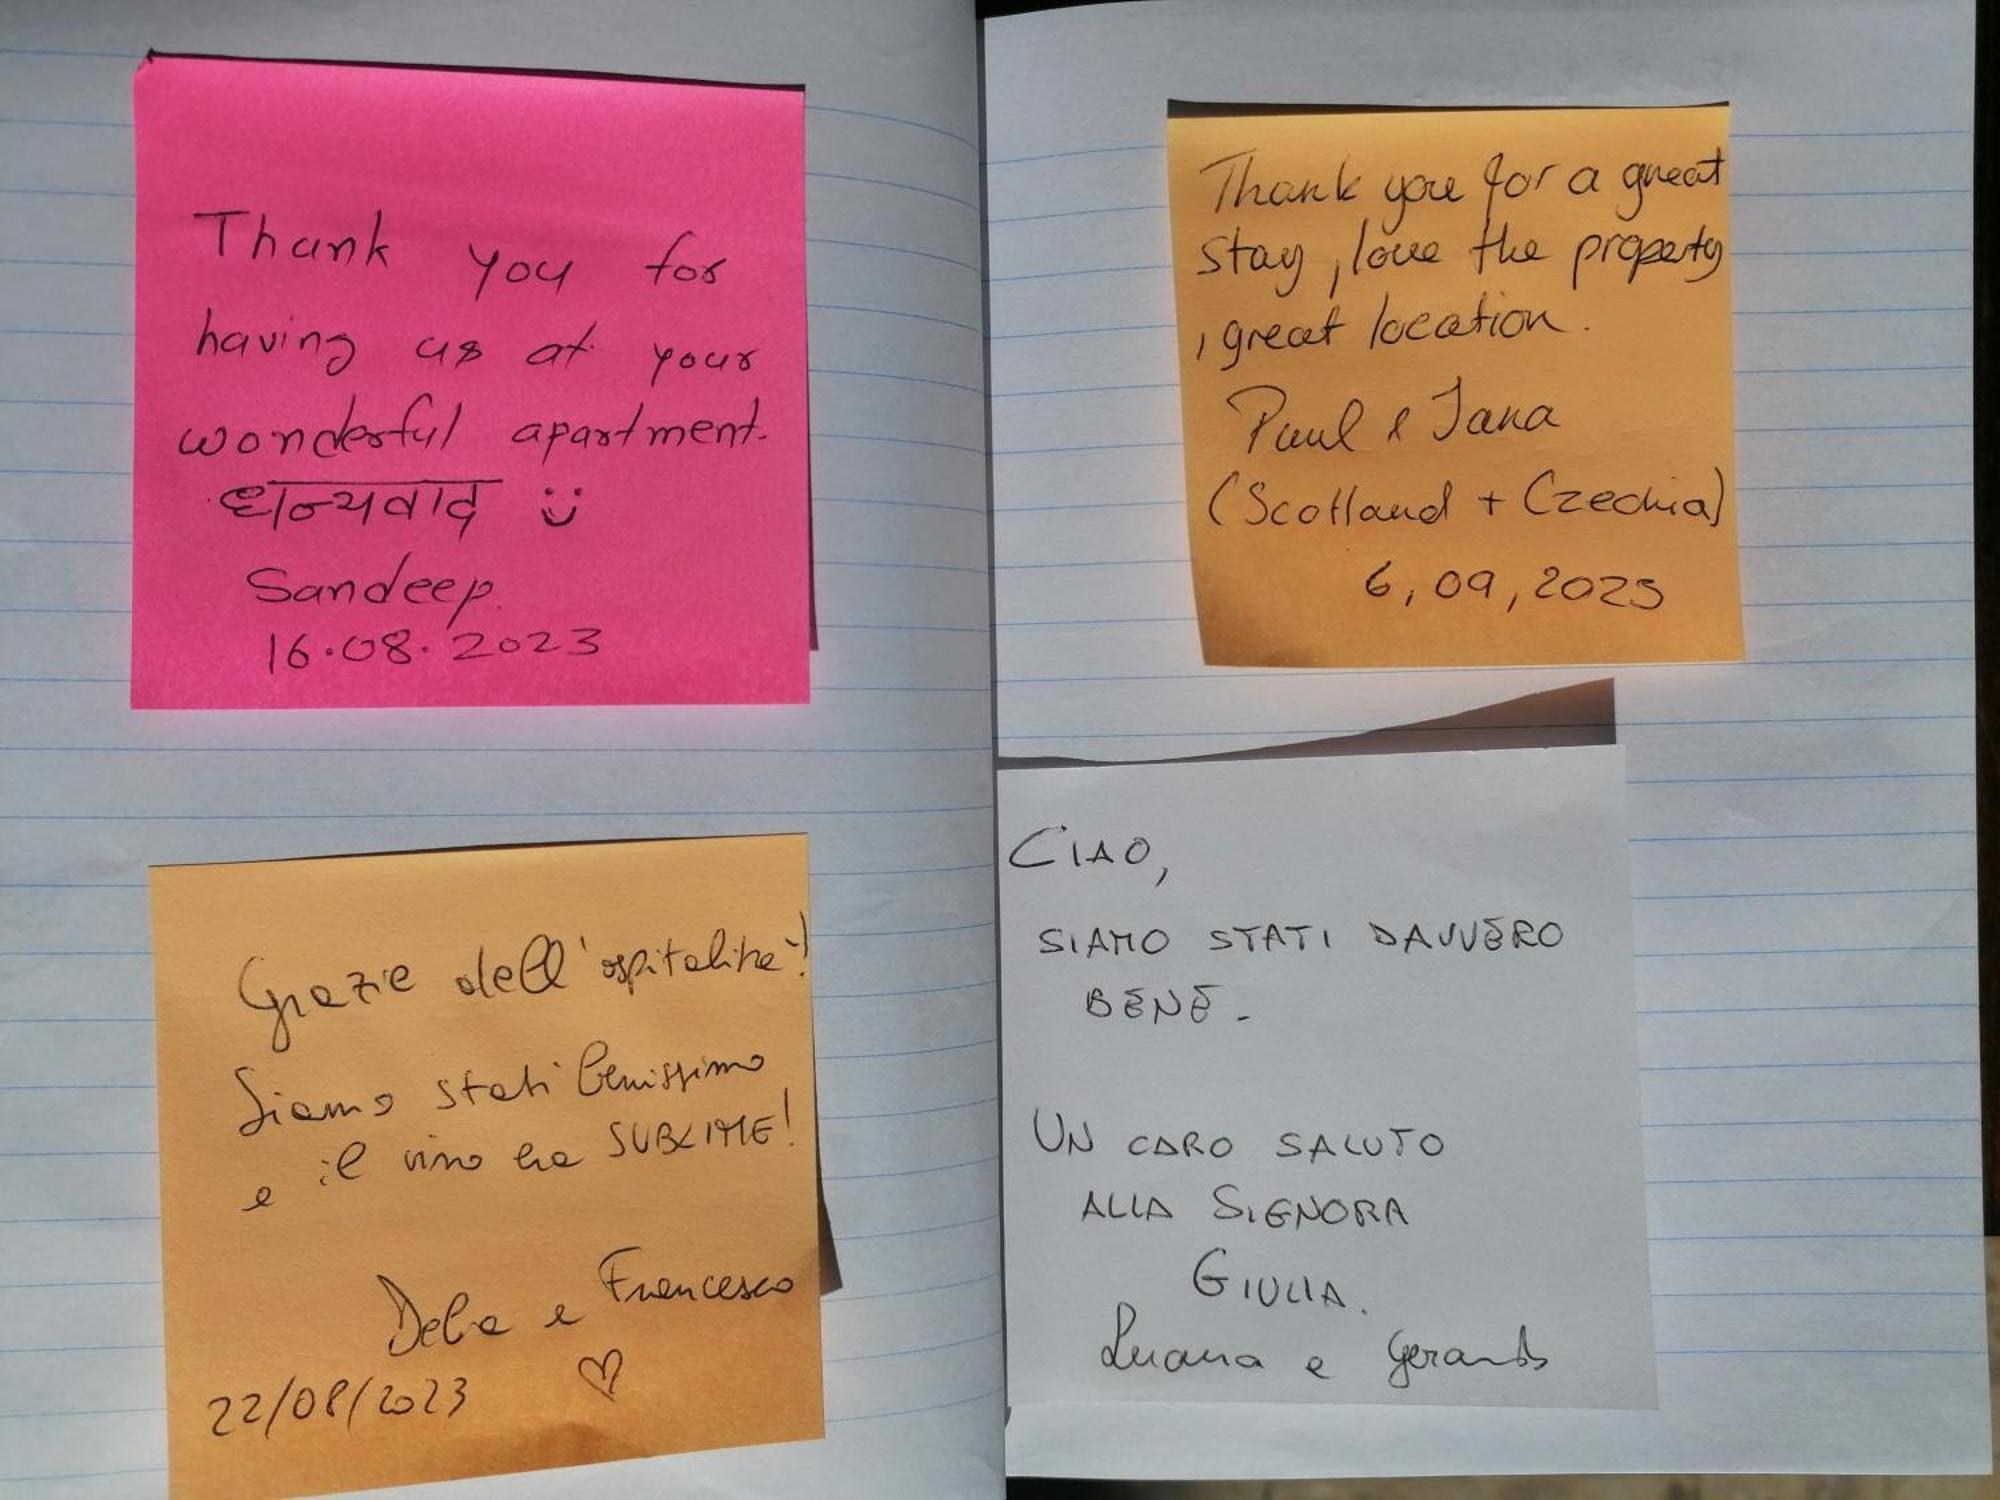 Thank you for
having us at your
wonderful apartment.
धन्यवाद ü
Sandeep
16.08.2023
Grazie dell'ospitalità!
Siamo stati benissimo
e il vino era SUBLIME!
Debra e Francesco
22/08/2023 ♡
Thank you for a great
stay, love the property
, great location.
Paul & Jana
(Scotland + Czechia)
6,09,2023
CIAO,
SIAMO STATI DAVVERO
BENE.
UN CARO SALUTO
ALLA SIGNORA
GIULIA.
Luana e